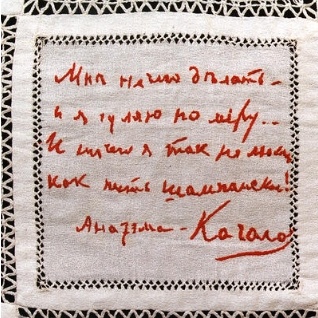 Мнѣ нечего дѣлать –
и я гуляю по міру..
И ничего я такъ не люблю
как пить шампанское!
Анатэма – Качало